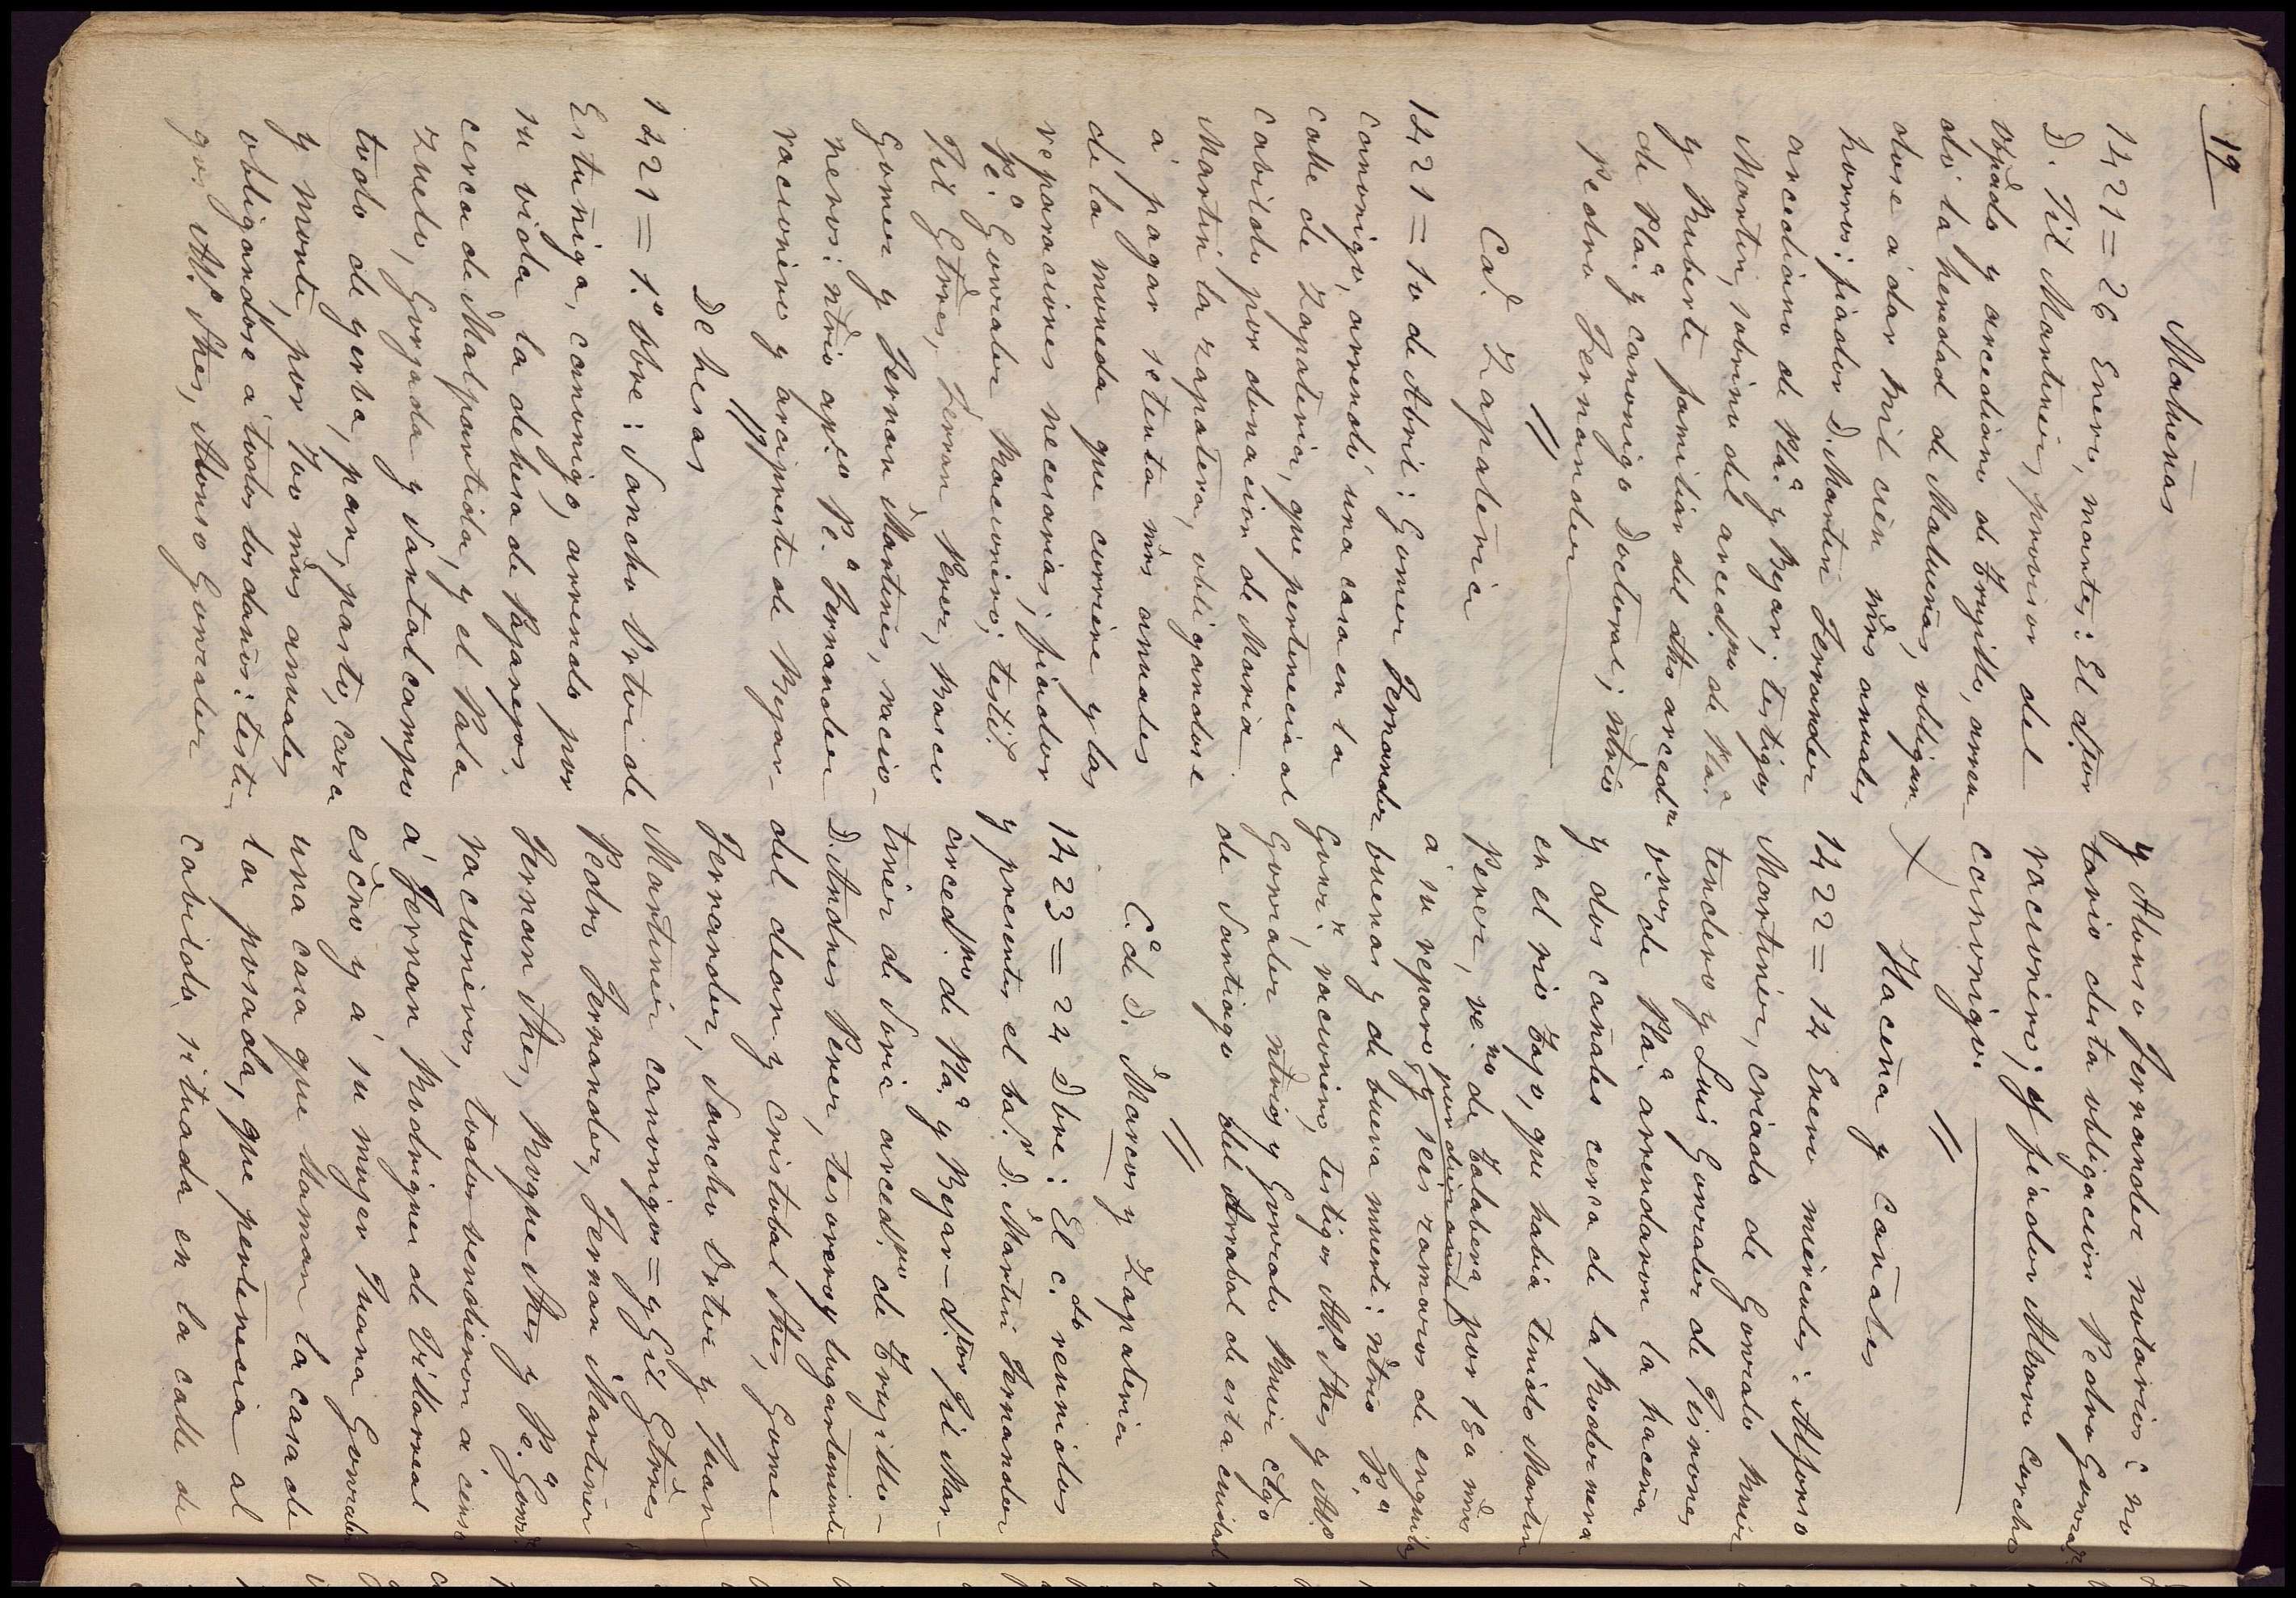 19
Matueñas
1421 = 26 Enero, martes: El d.tor
D. Jil Martinez, provisor del
obp̃ado y arcediano de Trugillo, arren-
dó la heredad de Matueñas, obligan
dose á dar mil cien mr̃s anuales
horros: fiador D. Martin Fernandez
arcediano de Pla.ª y Bejar; testigos
Martin, sobrino del arced.no de Pla.ª
y Ruberte familiar del dho arced.no
de Pla.ª y canonigo Doctoral; ntr̃io
Pedro Fernandez
Cad. Zapateria
1421 = 10 de Abril: Gomez Fernandez
canonigo, arrendó una casa en la
calle de Zapateria, que pertenecia al
cabildo por donacion de Maria
Martin la zapatera, obligandose
á pagar setenta mr̃s anuales
de la moneda que corriere y las
reparaciones necesarias; fiador
Pe.º Gonzalez Racionero; testi.s
Jil Gtr̃es, Ferran Perez, Blasco
Gomez y Fernan Martines, racio-
neros: ntr̃io ap.co Pe.º Fernandez
racionero y arcipreste de Bejar-
Dehesas
1421 = 1.º Obre: Sancho Ortiz de
Estuñiga, canonigo, arrendo por
su vida la dehesa de Paparejos,
cerca de Malpartida, y el Pala
zuelo, Gorjada y Santalcampo
todo de yerba, pan, pasto, caza
y monte, por 700 mr̃s anuales
obligandose á todos los daños: testi-
gos Alf.º Shes, Alonso Gonzalez
y Alonso Fernandez notarios: no
tario desta obligacion Pedro Gonzal.z
racionero; y fiador Alvaro Carcho
canonigo.
X Haceña y cañales
1422 = 14 Enero miercoles: Alfonso
Martinez, criado de Gonzalo Ruiz
tendero y Luis Gonzalez de Tirones
v.nos de Pla.ª arrendaron la haceña
y dos cañales cerca de la Rodernera
en el rio Tajo, que habia tenido Martin
Perez, ve.no de Talabera por 180 mr̃s
á su reparo, y seis zamaros de enguilas
buenas y de buena muerte: ntr̃io Pe.º
Gonz.z, racionero, testigos Alf. Shes y Alf.
Gonzalez ntr̃ios y Gonzalo Ruiz clg̃o
de Santiago del Arrabal de esta ciudad
C.ª de D. Marcos y Zapateria
1423 = 24 Dbre: El c.do reunidos
y presentes el ba.r D. Martin Fernandez
arced.no de Pla.ª y Bejar - d.tor Jil Mar-
tinez de Soria arced.no de Trugillo -
D. Andres Perez, tesorero y lugarteniente
del dean y Cristobal Shes, Gome
Ferrandez, Sancho Ortiz y Juan
Martinez canonigos = y Gil Gtr̃es
Pedro Fernandez, Fernan Martinez
Fernan Shes, Roque Shes y Pe.º Gonz.z
racioneros, todos vendieron á censo
á Fernan Rodriguez de Villarreal
esc̃no y á su muger Juana Gonzalez
una casa que llaman la casa de
la posada, que pertenecia al
cabildo situada en la calle de